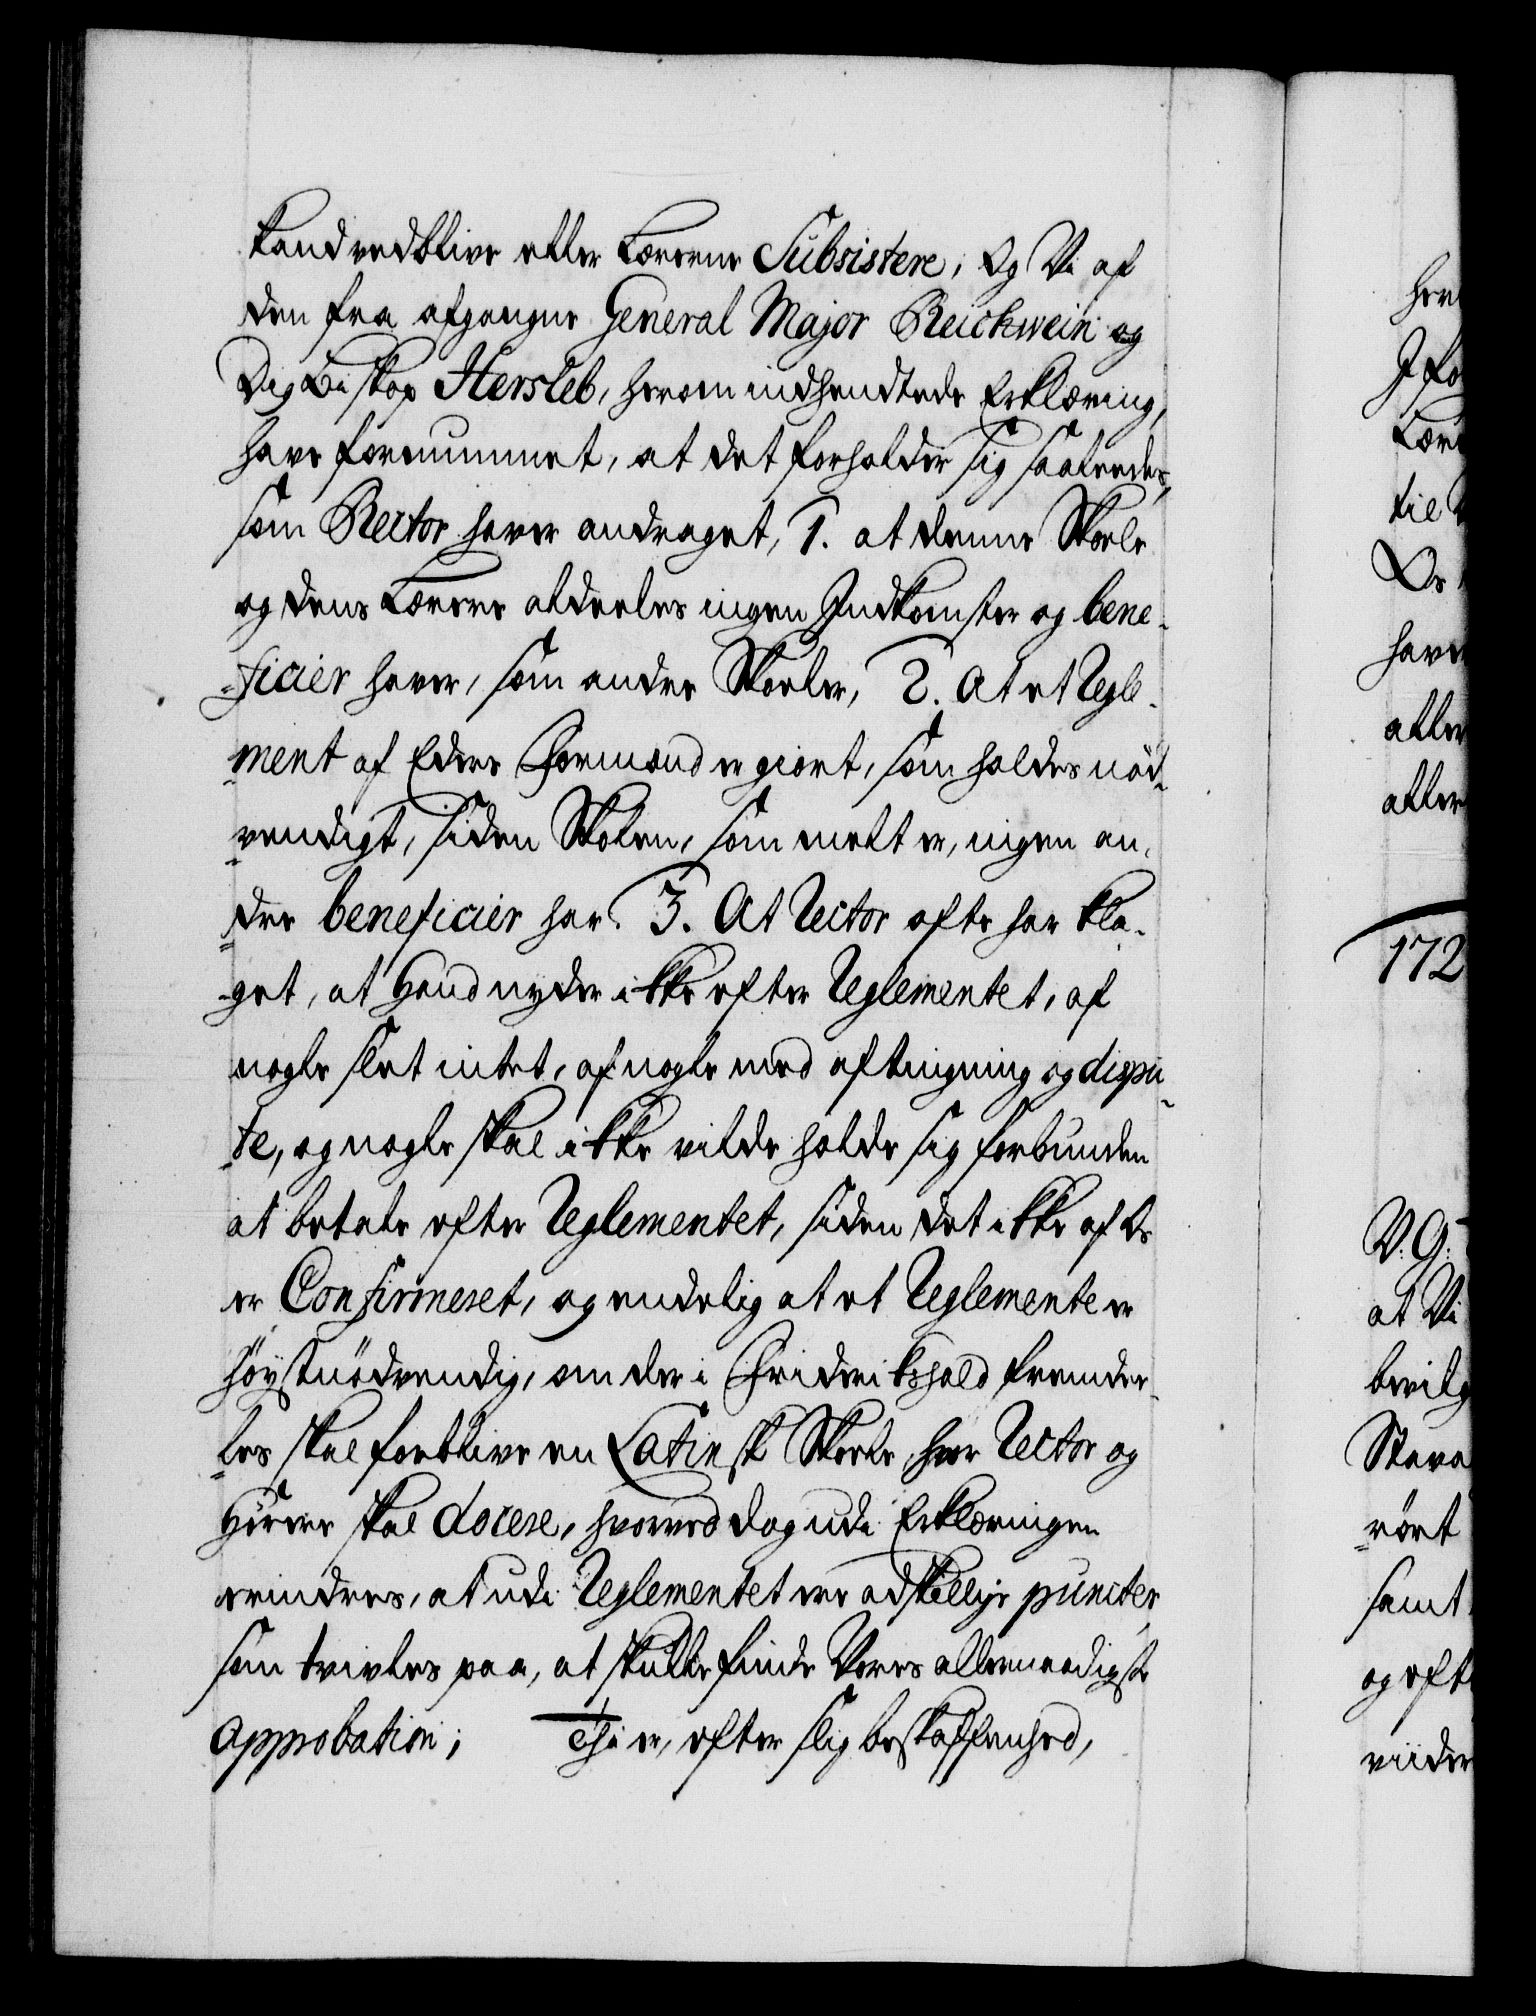 kand vedblive eller Lærerne Subsistere; Og Vi af
den fra afgangne General Major Reichwein og
Dig Biskop Hersleb, herom indhendtede Erklæring,
have fornummet, at det forholder sig saaledes,
som Rector haver andraget, 1. at denne Skoele
og dens Lærere aldeeles ingen Indkomster og bene-
ficier haver, som andre Skoeler, 2. At et Regle-
ment af Eders Formænd er giort, som holdes nöd-
vendigt, siden Skolen, som melt er, ingen an-
dre beneficier har. 3. At Rector ofte har kla-
get, at Hand nyder ikke efter Reglementet, af
nogle slet intet, af nogle med aftingning og dispu-
te, og nogle skal ikke vilde holde sig forbunden
at betale efter Reglementet, siden det ikke af Os
er Confirmeret, og endelig at et Reglemente er
höystnödvendig, om der i Friderikshald fremde-
les skal forblive en Latinsk Skoele, hvor Rector og
Hörere skal docere, hvorved dog udi Erklæringen
erindres, at udi Reglementet ere adskillige puncter
som tvivles paa, at skulle finde Vores allernaadigste
Approbation; Thi er, efter slig beskaffenhed,
J
til
Os
172
V. G.
at Vi
rört
samt